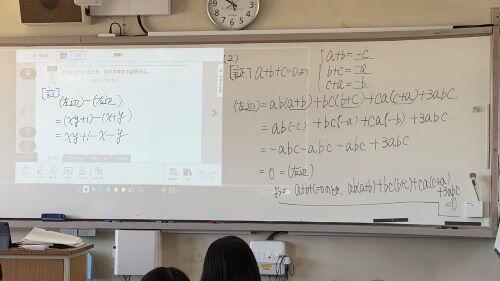 [証明]
(左辺)-(右辺)
=(xy+1)-(x+y)
=xy+1-x-y
(2)
[証明] a+b+c=0より
a+b=-c
b+c=-a
c+a=-b
(左辺)=ab(a+b)+bc(b+c)+ca(c+a)+3abc
=ab(-c)+bc(-a)+ca(-b)+3abc
=-abc-abc-abc+3abc
=0=(右辺)
a+b+c=0のとき、ab(a+b)+bc(b+c)+ca(c+a)
+3abc
=0